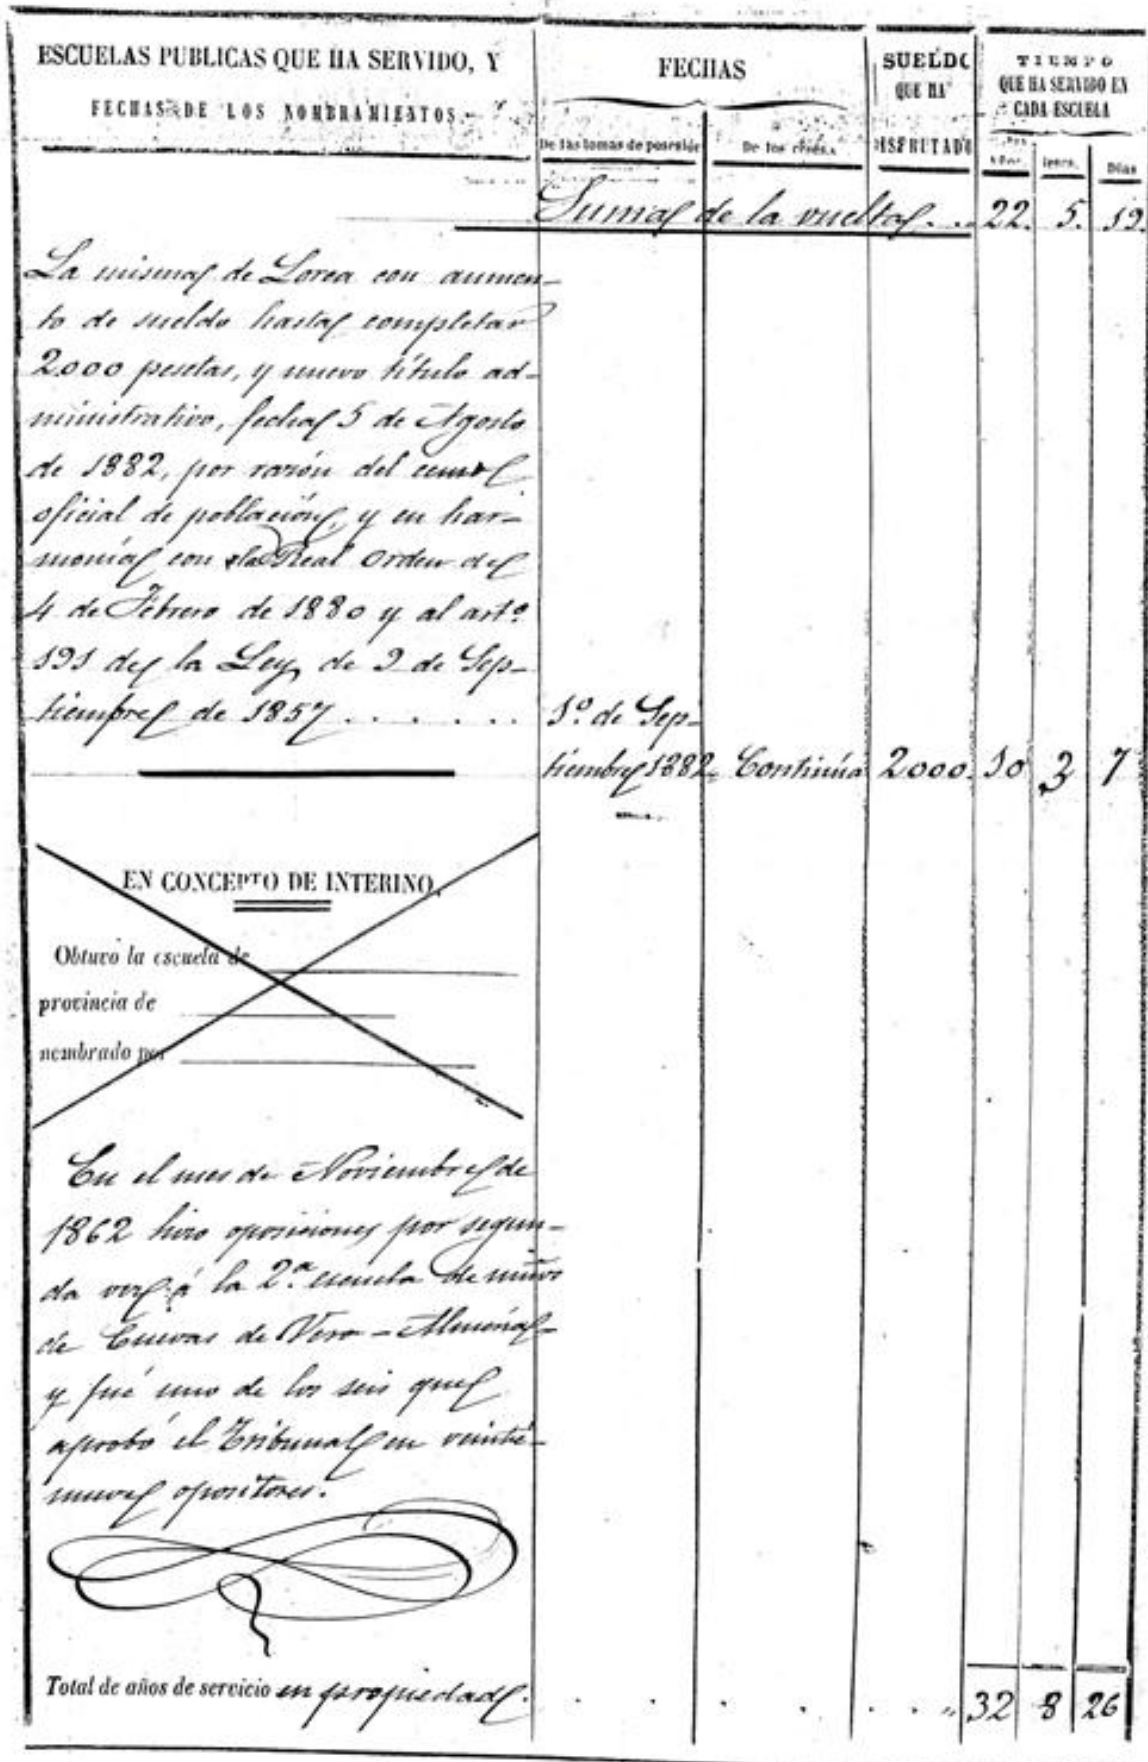 ESCUELAS PUBLICAS QUE HA SERVIDO, Y
FECHAS DE LOS NOMBRAMIENTOS
FECHAS
De las tomas de posesión
De los ceses
SUELDO
QUE HA
DISFRUTADO
TIEMPO
QUE HA SERVIDO EN
CADA ESCUELA
Años
Meses
Días
Sumas de la vuelta . . . 22. 5. 19.
La misma de Lorca con aumen-
to de sueldo hasta completar
2000 pesetas, y nuevo título ad-
ministrativo, fecha 5 de Agosto
de 1882, por razón del censo
oficial de población, y en har-
monía con la Real orden de
4 de Febrero de 1880 y al artº
191 de la Ley de 9 de Sep-
tiembre de 1857 . . . . . .
1º de Sep-
tiembre 1882. Continúa 2000. 10 3 7
EN CONCEPTO DE INTERINO.
Obtuvo la escuela de
provincia de
nombrado por
En el mes de Noviembre de
1862 hizo oposiciones por segun-
da vez á la 2ª escuela de niños
de Cuevas de Vera - Almería -
y fué uno de los seis que
aprobó el Tribunal en veinti-
nueve opositores.
Total de años de servicio en propiedad. . . . . . . „ 32 8 26